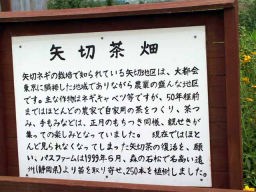 矢切茶畑
矢切ネギの栽培で知られている矢切地区は、大都会
東京に隣接した地域でありながら農業の盛んな地区
です。主な作物はネギ、キャベツ等ですが、50年程前
まではほとんどの農家で自家用の茶をつくり、茶つ
み、手もみなどは、正月のもちつき同様、親せきが
集っての楽しみとなっていました。 現在ではほと
んど見られなくなってしまった矢切茶の復活を、願
い、パスファームは1999年6月、森の石松で名高い遠
州（静岡県）より苗を取り寄せ、250本を植樹しました。